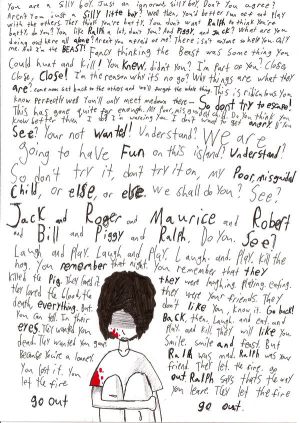 You are a silly boy. Just an ignorant silly boy. Don't you agree?
Aren't you just a silly little boy? Well then, you'd better run off and play
with the others. They think you're batty. You don't want Ralph to think you're
batty, do you? You like Ralph a lot, don't you? And Piggy, and Jack? What are you
doing out here all alone? Aren't you afraid of me? There isn't anyone to help you. Only
me. And I'm the BEAST!
Fancy thinking the Beast was something you
could hunt and kill! You knew, didn't you? I'm part of you? Close,
close, close! I'm the reason why it's no go? Why things are what they
are? Come now, get back to the others and we'll forget the whole thing. This is ridiculous. You
know perfectly well you'll only meet me down there – So don't try to escape!
This has gone quite far enough. My poor, misguided child. Do you think you
know better than I do? I'm warning you. I don't want to get angry.
See? Your not wanted! Understand? We are
going to have Fun on this island! Understand?
So don't try it, don't try it on, my Poor, misguided
Child, or else, or else. We shall do you? See?
Jack and Roger and Maurice and Robert
and Bill and Piggy and Ralph. Do you. See?
Laugh and Play. Laugh and Play. Laugh and Play. Kill the
hog. You remember that night. You remember that they
killed the Pig. They loved it,
they loved the blood, the
death, everything.
You can tell. In their
eyes. They wanted you
dead. They wanted you gone.
Because you're a loner.
You lost it. You
let the fire
go out
they were laughing. Mating. eating.
They were your friends. They
don't like you, know it. Go back!
Back, then, and eat and
play and kill. They will like you
Smile. smile and feast. But
Ralph was mad. Ralph was your
friend. They let the fire go
out. Ralph says that's the way
you leave. They let the fire
go out